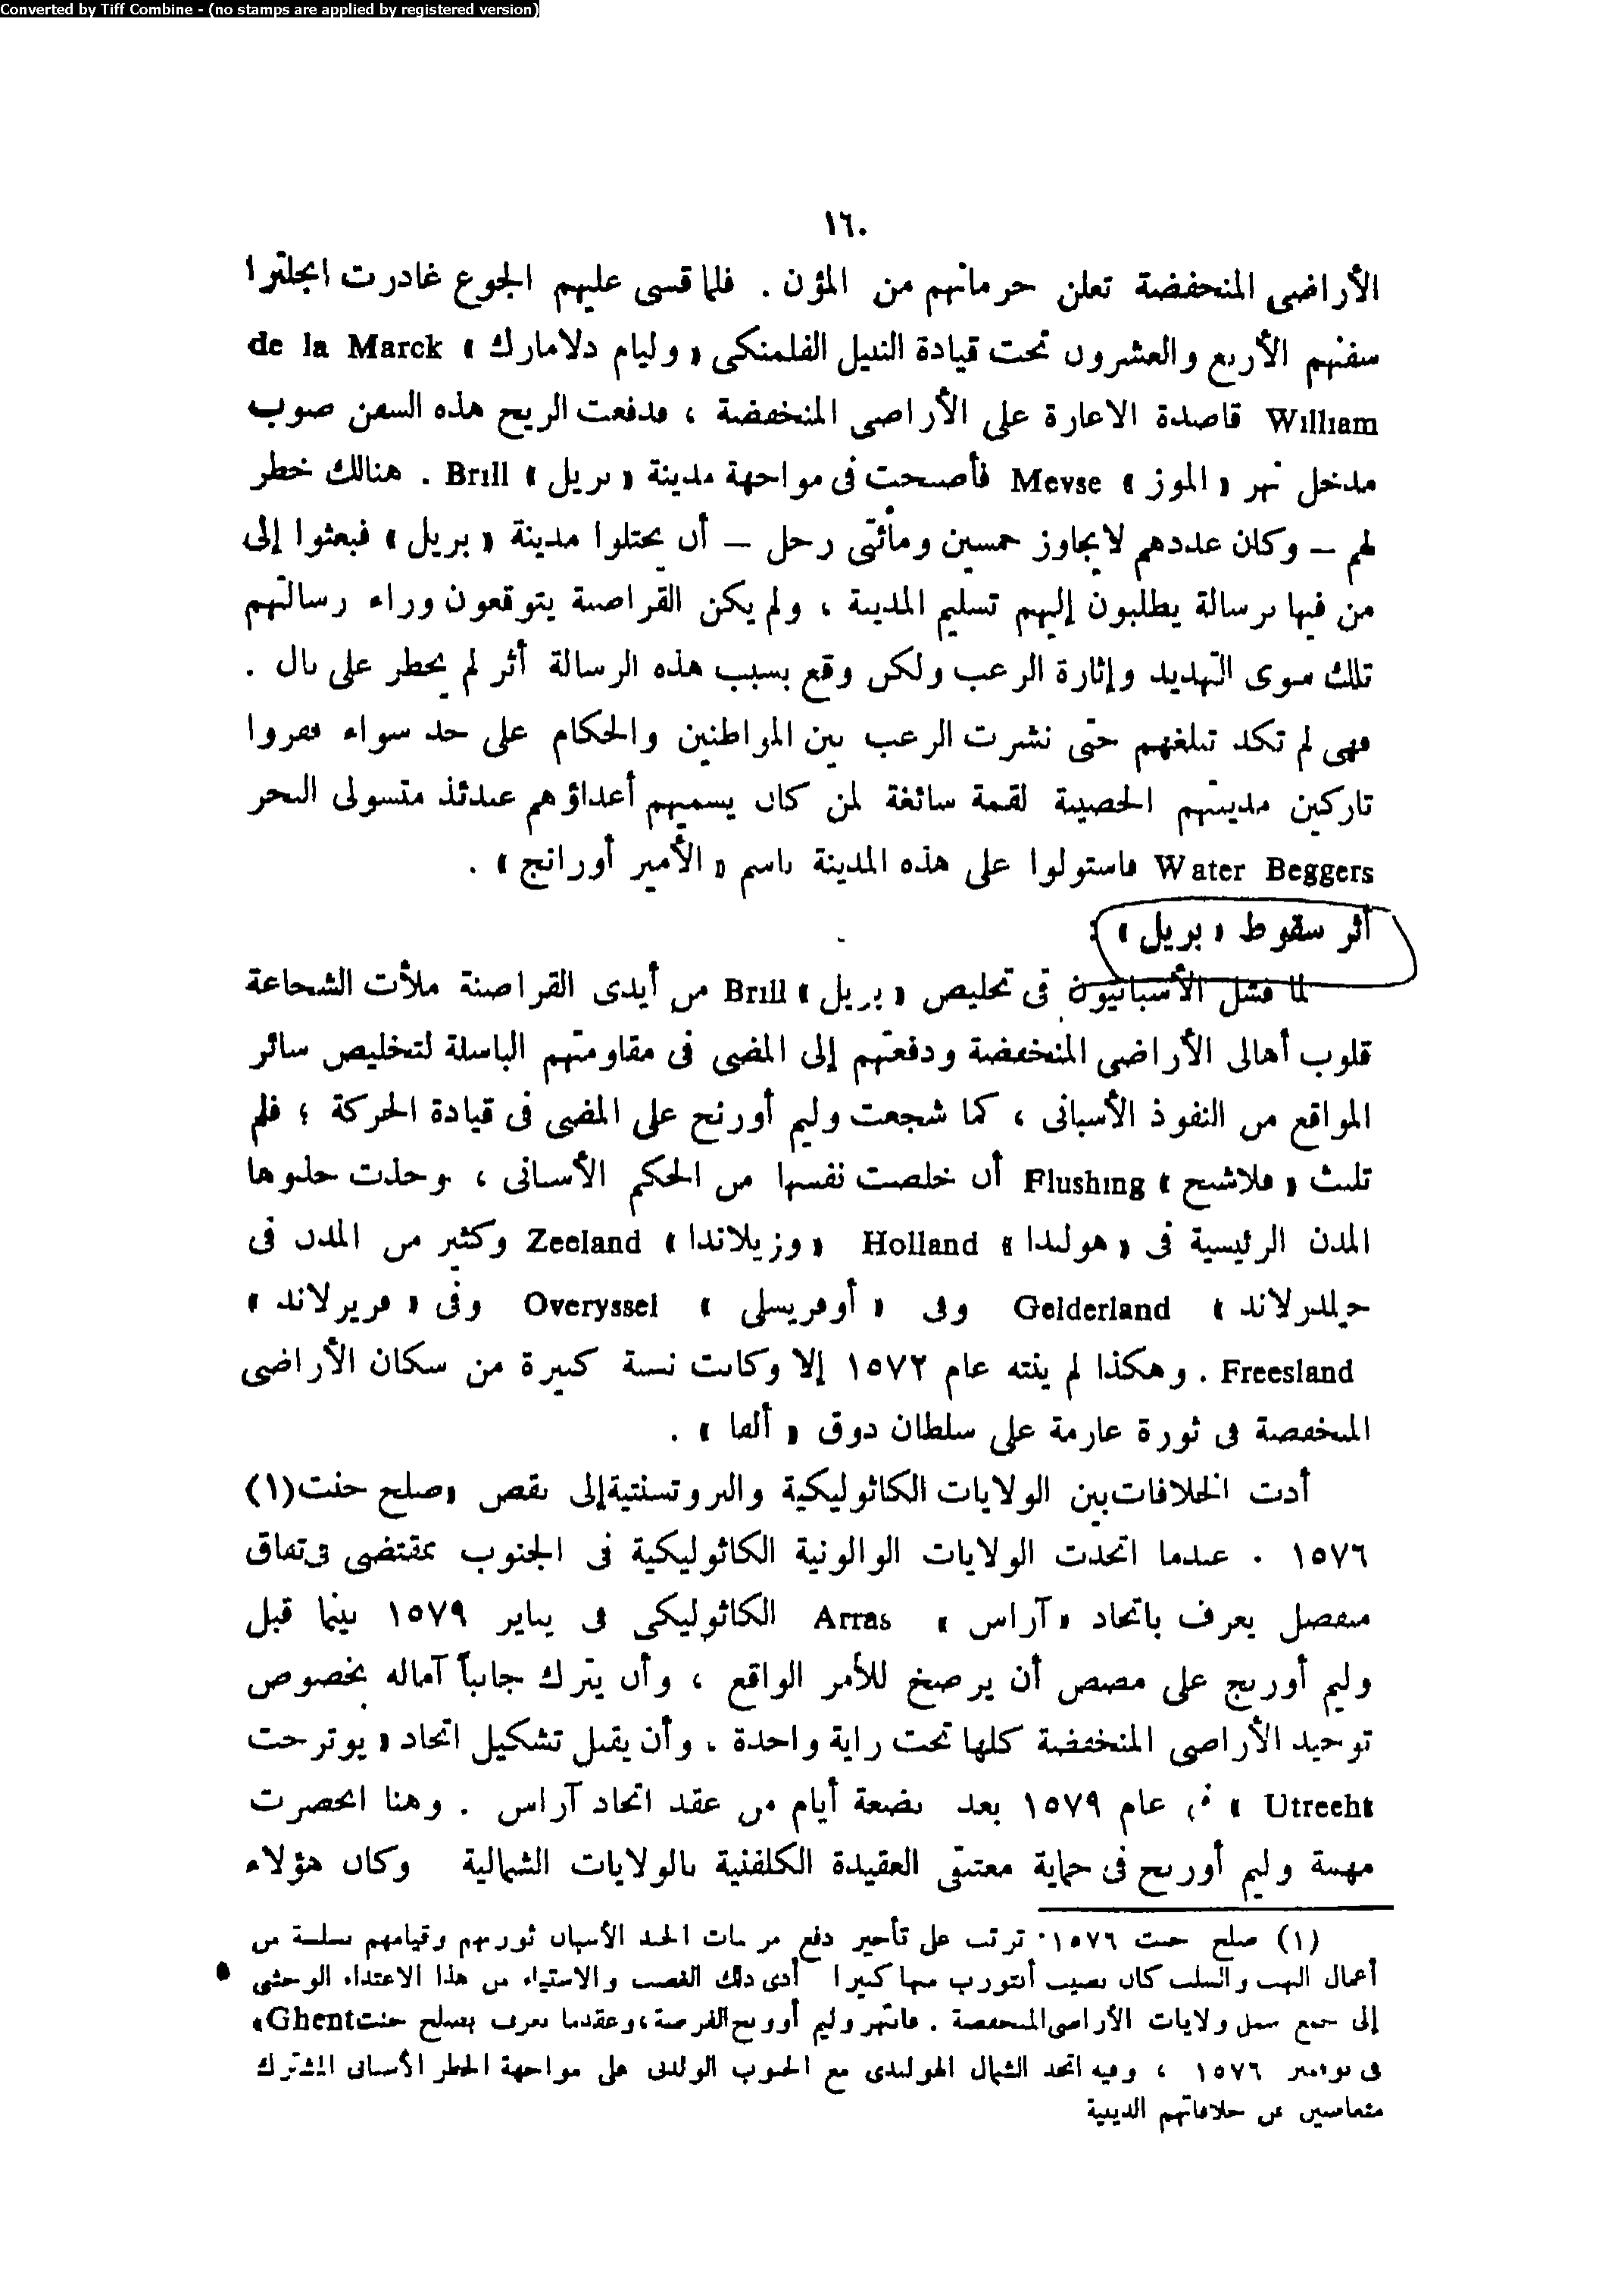 Converted by Tiff Combine - (no stamps are applied by registered version)
١٦٠
الأراضى المنخفضة تعلن حرمانهم من المؤن . فلما قسى عليهم الجوع غادرت انجلترا
سفنهم الأربع والعشرون تحت قيادة النبيل الفلمنكى « وليام دلامارك » de la Marck
William قاصدة الاغارة على الأراضى المنخفضة ، فدفعت الريح هذه السفن صوب
مدخل نهر « الموز » Mevse فأصبحت فى مواجهة مدينة « بريل » Brill . هنالك خطر
لهم – وكان عددهم لا يجاوز خمسين ومائتى رجل – أن يحتلوا مدينة « بريل » فبعثوا إلى
من فيها برسالة يطلبون إليهم تسليم المدينة ، ولم يكن القراصنة يتوقعون وراء رسالتهم
تلك سوى التهديد وإثارة الرعب ولكن وقع بسبب هذه الرسالة أثر لم يخطر على بال .
فهى لم تكد تبلغهم حتى نشرت الرعب بين المواطنين والحكام على حد سواء ففروا
تاركين مدينتهم الحصينة لقمة سائغة لمن كان يسميهم أعداؤهم عندئذ متسولى البحر
Water Beggers فاستولوا على هذه المدينة باسم « الأمير أورانج » .
أثر سقوط « بريل » :
لما فشل الأسبانيون فى تخليص « بريل » Brill من أيدى القراصنة ملأت الشجاعة
قلوب أهالى الأراضى المنخفضة ودفعتهم إلى المضى فى مقاومتهم الباسلة لتخليص سائر
المواقع من النفوذ الأسبانى ، كما شجعت وليم أورنج على المضى فى قيادة الحركة ؛ فلم
تلبث « فلاشنج » Flushing أن خلصت نفسها من الحكم الأسبانى ، وحذت حذوها
المدن الرئيسية فى « هولندا » Holland « وزيلاندا » Zeeland وكثير من المدن فى
جيلدرلاند » Gelderland وفى « أوفريسلى » Overyssel وفى « فريرلاند »
Freesland . وهكذا لم ينته عام ١٥٧٢ إلا وكانت نسبة كبيرة من سكان الأراضى
المنخفضة فى ثورة عارمة على سلطان دوق « ألفا » .
أدت الخلافات بين الولايات الكاثوليكية والبروتستنتية إلى نقض «صلح جنت(١)
١٥٧٦ . عندما اتحدت الولايات الوالونية الكاثوليكية فى الجنوب بمقتضى اتفاق
منفصل يعرف باتحاد « آراس » Arras الكاثوليكى فى يناير ١٥٧٩ بينما قبل
وليم أورنج على مضض أن يرضخ للأمر الواقع ، وأن يترك جانباً آماله بخصوص
توحيد الأراضى المنخفضة كلها تحت راية واحدة ، وأن يقبل تشكيل اتحاد « يوترخت
Utrecht » فى عام ١٥٧٩ بعد بضعة أيام من عقد اتحاد آراس . وهنا انحصرت
مهمة وليم أورنج فى حماية معتنقى العقيدة الكلفنية بالولايات الشمالية وكان هؤلاء
(١) صلح جنت ١٥٧٦ . ترتب على تأخير دفع مرتبات الجند الأسبان ثورتهم وقيامهم بسلسلة من
أعمال النهب والسلب كان نصيب أنتورب منها كبيرا أدى ذلك الغضب والاستياء من هذا الاعتداء الوحشى
إلى جمع شمل ولايات الأراضى المنخفضة . فانتهز وليم أورنج الفرصة، وعقد ما يعرف بصلح جنت Ghent»
فى نوفمبر ١٥٧٦ ، وفيه اتحد الشمال الهولندى مع الجنوب الولونى على مواجهة الخطر الأسبانى المشترك
متغاضين عن خلافاتهم الدينية